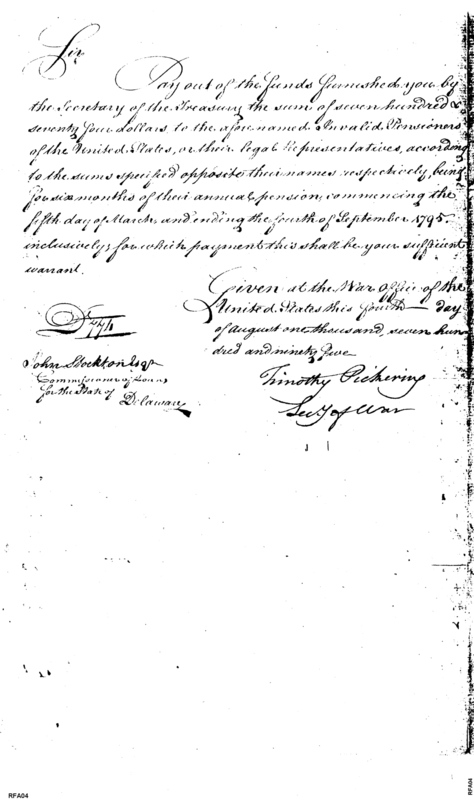 Sir
Pay out of the Funds furnished you by
the Secretary of the Treasury the sum of seven hundred &
seventy four dollars to the afore named Invalid Pensioners
of the United States, or their legal Representatives, according
to the sums specified opposite their names respectively, being
for six months of their annual pension, commencing the
fifth day of March, and ending the fourth of September 1795
inclusively; for which payment this shall be your sufficient
warrant.
Given at the War Office of the
United States this fourth day
of august one thousand, seven hun
dred and ninety five
Timothy Pickering
Secy of War
D 774
John Stockton Esqr
Commissioner of Loans
for the State of
Delaware
RFA04
RFA04